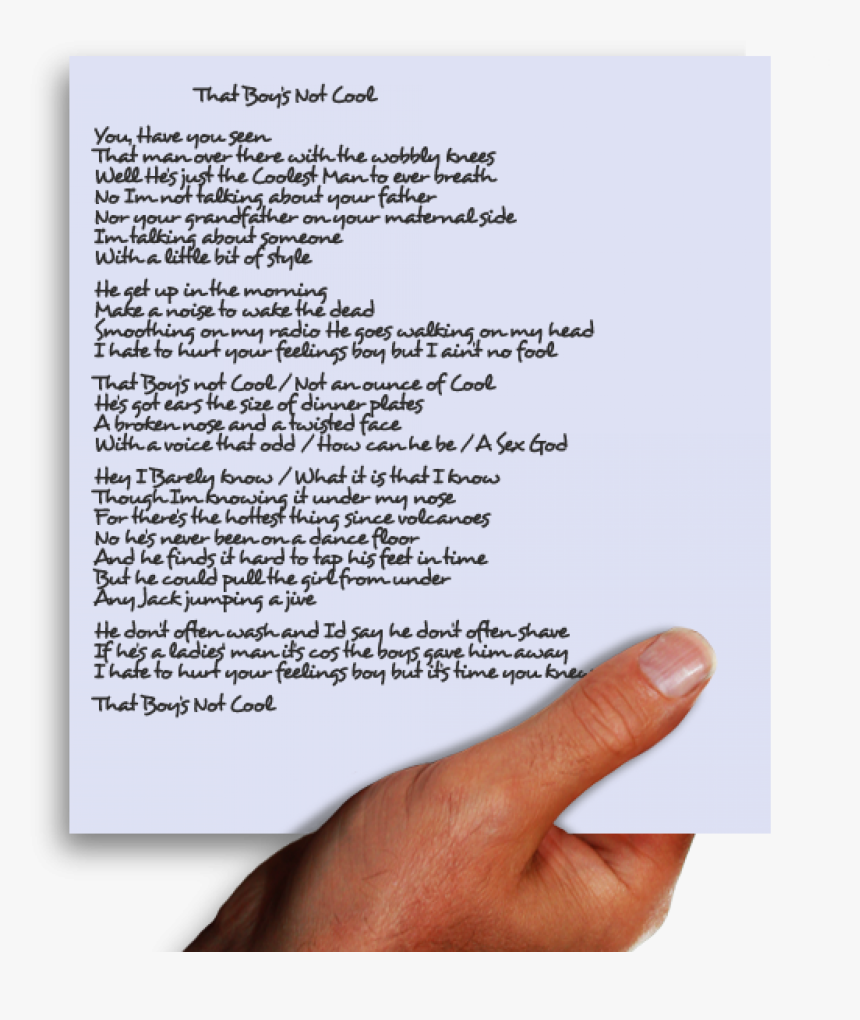 That Boy's Not Cool
You, Have you seen
That man over there with the wobbly knees
Well He's just the Coolest Man to ever breath
No Im not talking about your father
Nor your grandfather on your maternal side
Im talking about someone
With a little bit of style
He get up in the morning
Make a noise to wake the dead
Smoothing on my radio He goes walking on my head
I hate to hurt your feelings boy but I ain't no fool
That Boy's not Cool / Not an ounce of Cool
He's got ears the size of dinner plates
A broken nose and a twisted face
With a voice that odd / How can he be / A Sex God
Hey I Barely know / What it is that I know
Though Im knowing it under my nose
For there's the hottest thing since volcanoes
No he's never been on a dance floor
And he finds it hard to tap his feet in time
But he could pull the girl from under
Any Jack jumping a jive
He don't often wash and I'd say he don't often shave
If he's a ladies' man it's cos the boys gave him away
I hate to hurt your feelings boy but it's time you knew
That Boy's Not Cool